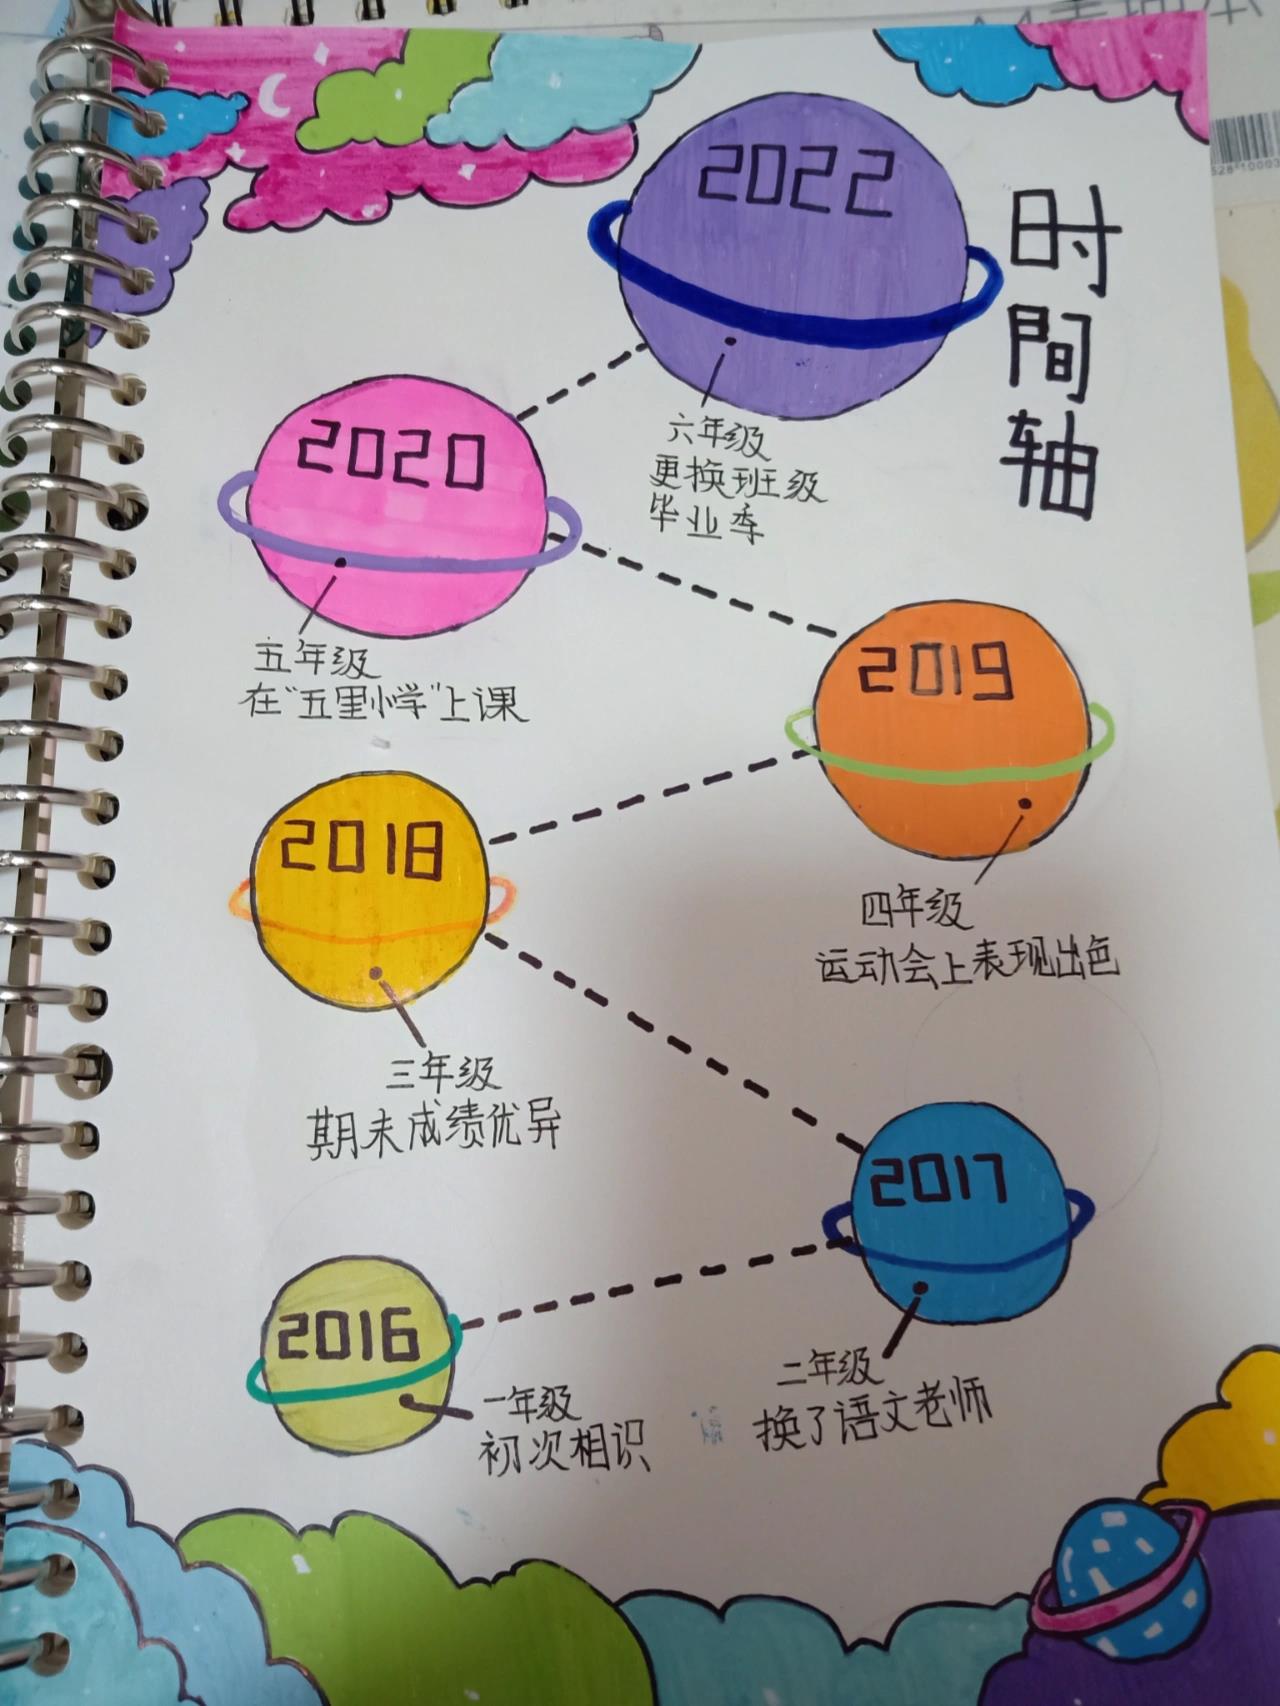 2022
时
間
轴
六年级
更换班级
毕业季
2020
五年级
在“五里小学”上课
2019
四年级
运动会上表现出色
2018
三年级
期末成绩优异
2017
二年级
换了语文老师
2016
一年级
初次相识